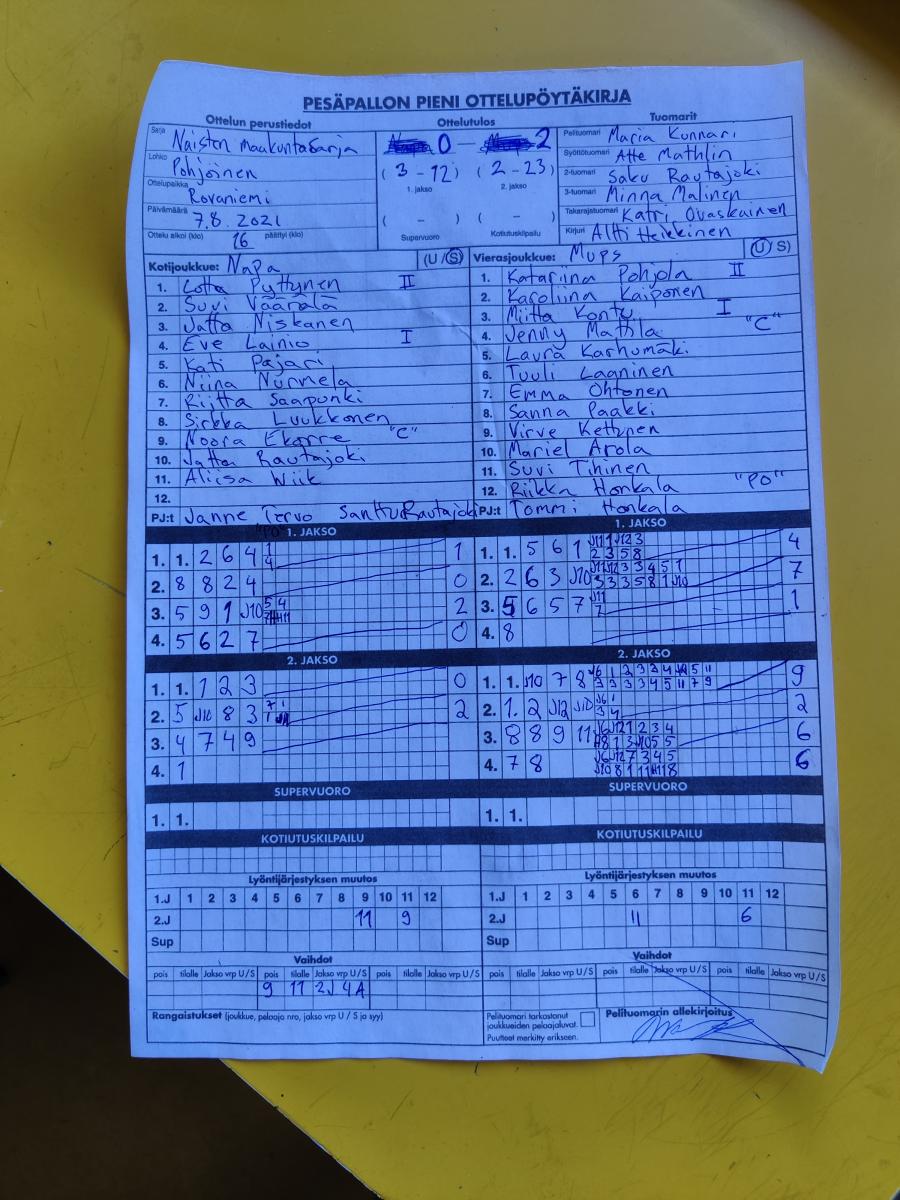 PESÄPALLON PIENI OTTELUPÖYTÄKIRJA
Ottelun perustiedot Ottelutulos Tuomarit
Sarja Naisten maakuntasarja 0 – 2 Pelituomari Maria Kunnari
Lohko Pohjoinen (3 – 12) (2 – 23) Syöttötuomari Atte Mathlin
1. jakso 2. jakso 2-tuomari Saku Rautajoki
Ottelupaikka Rovaniemi 3-tuomari Minna Malinen
Päivämäärä 7.8. 2021 ( – ) ( – ) Takarajatuomari Katri Ovaskainen
Ottelu alkoi (klo) 16 päättyi (klo) Supervuoro Kotiutuskilpailu Kirjuri Altti Heikkinen
Kotijoukkue: NaPa (U/S) Vierasjoukkue: MuPS (U/S)
1. Lotta Pyttynen II 1. Katariina Pohjola II
2. Suvi Väärälä 2. Karoliina Kaiponen
3. Jatta Niskanen 3. Miitta Konttu I
4. Eve Lainio I 4. Jenny Mathla "C"
5. Kati Pajari 5. Laura Karhumäki
6. Niina Nurmela 6. Tuuli Laaninen
7. Riitta Saapunki 7. Emma Ohtonen
8. Sirkka Luukkonen 8. Sanna Paakki
9. Noora Ekorre "C" 9. Virve Kettunen
10. Jatta Rautajoki 10. Mariel Arola
11. Aliisa Wiik 11. Suvi Tihinen
12. 12. Riikka Honkala "PO"
PJ:t Janne Tervo Santtu Rautajoki PJ:t Tommi Honkala
1. JAKSO 1. JAKSO
1. 1. 2 6 4 1 4 1 1. 1. 5 6 1 J11 1 J12 3 2 3 5 8 4
2. 8 8 2 4 0 2. 2 6 3 J10 3 3 4 5 1 3 3 3 5 8 1 J10 7
3. 5 9 1 J10 5 4 2 3. 5 6 5 7 J11 7 1
4. 5 6 2 7 0 4. 8
2. JAKSO 2. JAKSO
1. 1. 1 2 3 0 1. 1. J10 7 8 J6 1 2 3 3 4 5 11 3 3 3 3 4 5 11 7 9 9
2. 5 J10 8 3 7 1 2 2. 1. 2 J12 J10 J6 1 3 4 2
3. 4 7 4 9 3. 8 8 9 11 J6 J12 1 2 3 4 6
4. 1 4. 7 8 J6 J12 7 3 4 5 6
SUPERVUORO SUPERVUORO
1. 1. 1. 1.
KOTIUTUSKILPAILU KOTIUTUSKILPAILU
Lyöntijärjestyksen muutos Lyöntijärjestyksen muutos
1.J 1 2 3 4 5 6 7 8 9 10 11 12 1.J 1 2 3 4 5 6 7 8 9 10 11 12
2.J 11 9 2.J 11 6
Sup Sup
Vaihdot Vaihdot
pois tilalle Jakso vrp U/S pois tilalle Jakso vrp U/S pois tilalle Jakso vrp U/S pois tilalle Jakso vrp U/S pois tilalle Jakso vrp U/S pois tilalle Jakso vrp U/S
9 11 2J 4A
Rangaistukset (joukkue, pelaaja nro, jakso vrp U / S ja syy) Pelituomari tarkastanut joukkueiden pelaajaluvat. Puutteet merkitty erikseen. Pelituomarin allekirjoitus